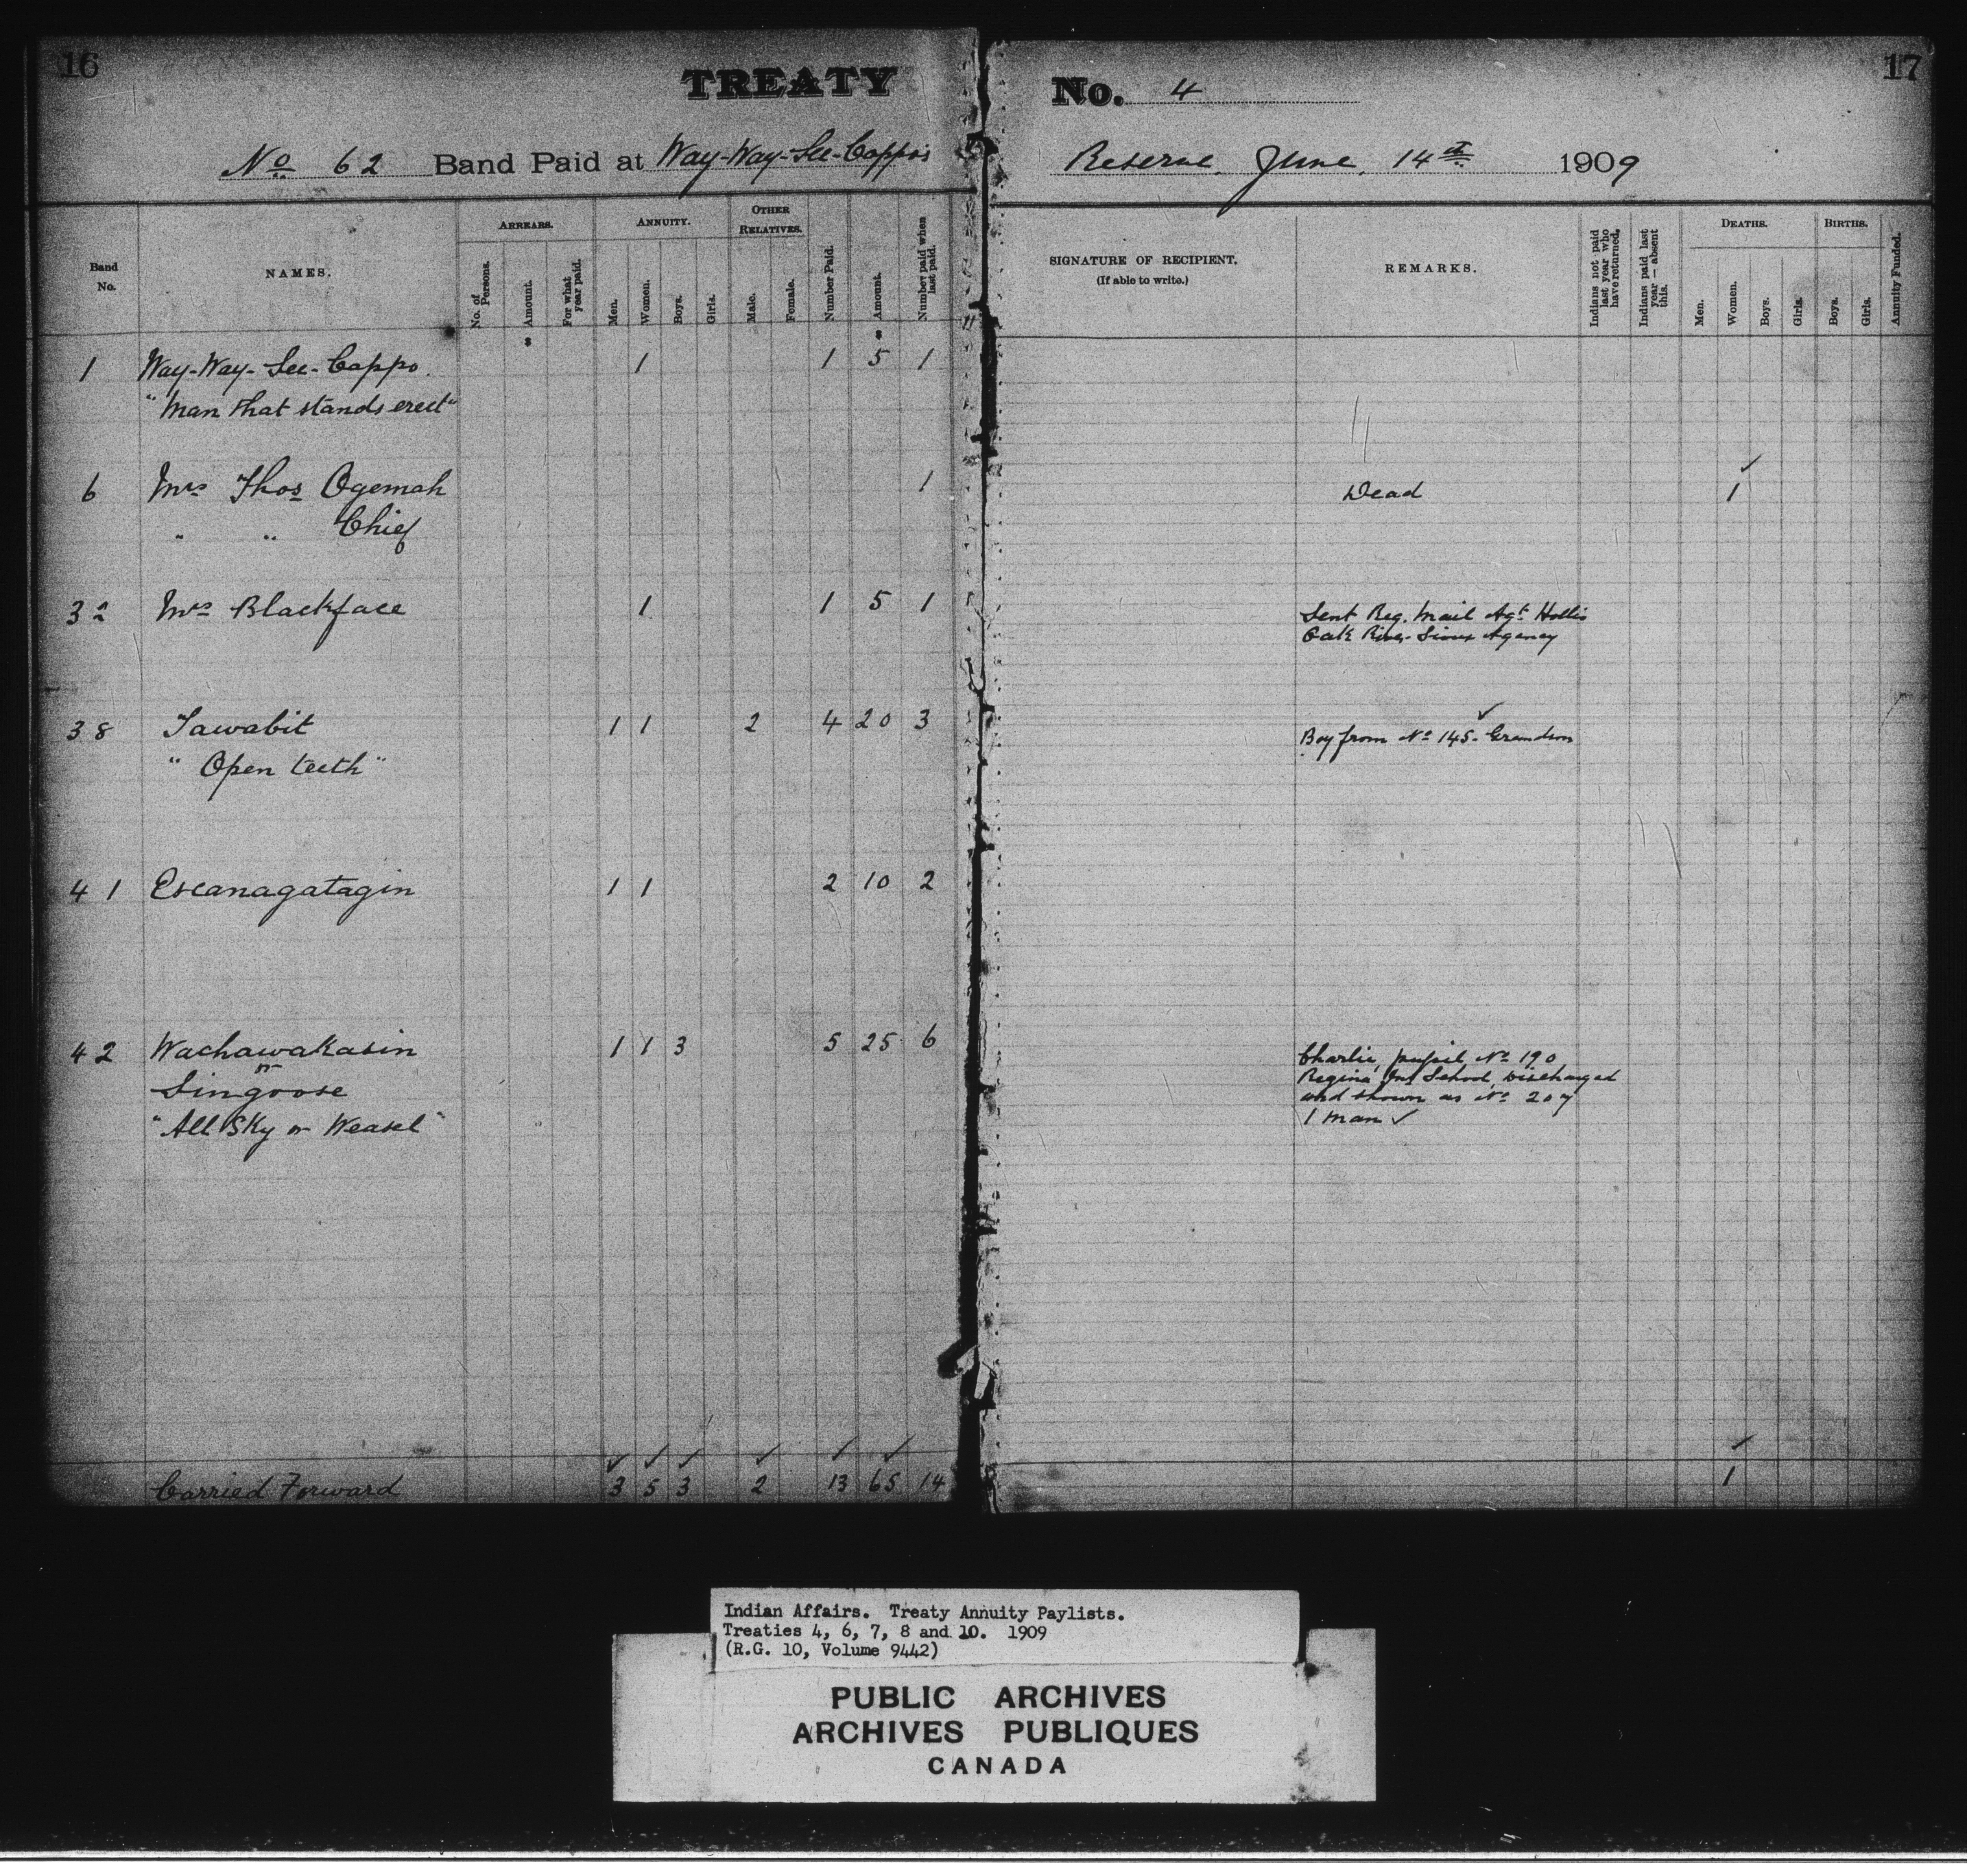 16
TREATY
No. 4
17
No 62 Band Paid at Way-Way-See-Cappo's
Reserve, June, 14th 1909
Band No.
NAMES.
ARREARS.
No. of Persons.
Amount.
For what year paid.
ANNUITY.
Men.
Women.
Boys.
Girls.
OTHER RELATIVES.
Male.
Female.
Number Paid.
Amount.
Number paid when last paid.
SIGNATURE OF RECIPIENT.
(If able to write.)
REMARKS.
Indians not paid last year who have returned.
Indians paid last year — absent this.
DEATHS.
Men.
Women.
Boys.
Girls.
BIRTHS.
Boys.
Girls.
Annuity Funded.
$ $
1 Way-Way-See-Cappo. 1 1 5 1
"Man that stands erect"
6 Mrs Thos Ogemah 1 Dead 1
" " Chief
32 Mrs Blackface 1 1 5 1
Sent Reg. Mail Agt Hollis
Oak River Sioux Agency
38 Tawabit 1 1 2 4 20 3
Boy from No 145. Grandson
"Open teeth"
41 Escanagatagin 1 1 2 10 2
42 Wachawakasin 1 1 3 5 25 6
or
Singoose
"All Sky or Weasel"
Charlie, pupil No 190
Regina Ind School, Discharged
and shown as No 207
1 man ✓
Carried Forward 3 5 3 2 13 65 14 1
Indian Affairs. Treaty Annuity Paylists.
Treaties 4, 6, 7, 8 and 10. 1909
(R.G. 10, Volume 9442)
PUBLIC ARCHIVES
ARCHIVES PUBLIQUES
CANADA